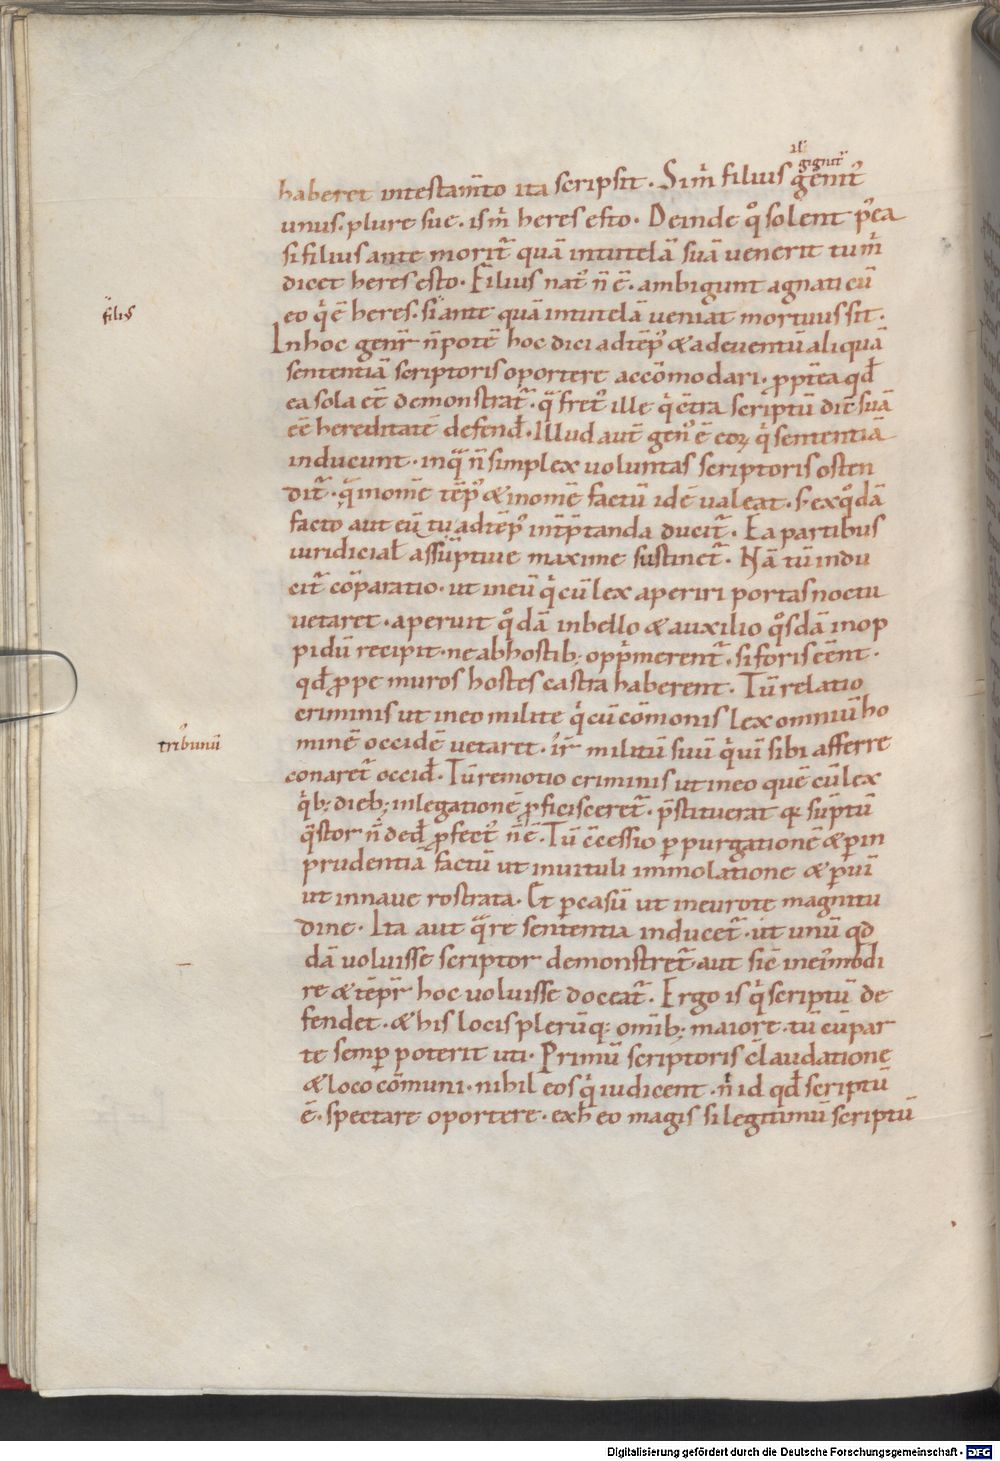 al̄
gignut᷑
haberet intestam̄to ita scripsit. Si m̊ filius genit᷑
unus. plure sue. is m̊ heres esto. Deinde q̊ solent p̄ea
si filius ante morit᷑ quā in tutelā suā venerit tu m̊
dicet heres esto. Filius nat᷒ n̄ ē. ambigunt agnati cū
filis
eo q̊ ē heres. si ante quā in tutelā veniat mortuus sit.
In hoc gen̄r n̄ potē hoc dici ad tēp᷒ & ad eventū aliquā
sententiā scriptoris oportere accōmodari. ꝓpt̄ea qđ
ea sola eē demonstrat᷑. q̄ fret᷒ ille q̊ c̄tra scriptū dic̄ suā
eē hereditatē defend̄. Illud aut̄ gen᷒ ē eoꝝ q̊ sententiā
inducunt. in q̄ n̄ simplex voluntas scriptoris osten
dit᷑. q̄ in om̄e tēp᷒ & in om̄e factū idē valeat. s; ex q̊dā
facto aut eūtu ad tēp᷒ int̄p̄tanda ducit᷑. Ea partibus
iuridicial̄ assūptiue maxime sustinet᷑. Nā tū indu
cit᷑ cōparatio. ut in eū q̊ cū lex aperiri portas noctu
vetaret. aperuit q̊dā in bello & auxilio q̊sdā in op
pidū recipit. ne ab hostib; opp̊merent᷑. si foris eēnt.
qđ ꝓpe muros hostes castra haberent. Tū relatio
criminis ut in eo milite q̊ cū cōmonis lex omniū ho
tribunū
minē occidē vetaret. t̊r̄ militū suū q̊ uī sibi afferre
conaret᷑ occid̄. Tū remotio criminis ut in eo quē cū lex
q̊b; dieb; in legationē ꝓficisceret᷑. p̄stituerat q; sūptū
q̄stor n̄ ded̄ ꝓfect᷒ n̄ ē. Tū c̄cessio ꝑ purgationē & ꝑ in
prudentiā factū ut in vituli immolatione & ꝑ uī
ut in nave rostrata. Et ꝑ casū ut in eurote magnitu
dine. Ita aut q̄re sententia inducet᷑. ut unū qd
dā voluisse scriptor demonstret᷑ aut sic̄ in ei᷒modi
re & tēpr̄ hoc voluisse doceat᷑. Ergo is q̊ scriptū de
fendet. & his locis plerūq; om̄ib; maiore. tū eū par
te semꝑ poterit uti. Primū scriptoris c̄laudatione
& loco cōmuni. nihil eos q̊ iudicent. n̄ id qđ scriptū
ē. spectare oportere. ex h̄ eo magis si legitimū scriptū
Digitalisierung gefördert durch die Deutsche Forschungsgemeinschaft - DFG